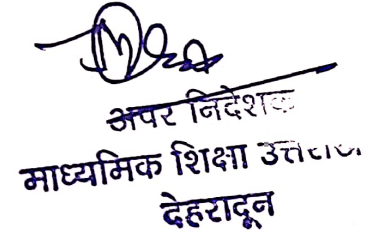 अपर निदेशक
माध्यमिक शिक्षा
देहरादून